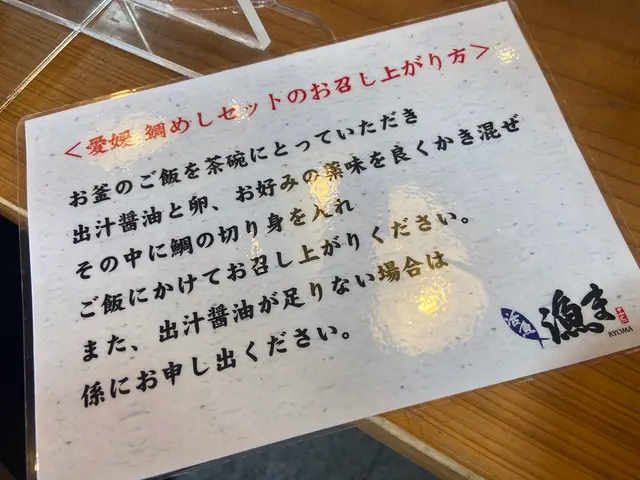 <愛媛 鯛めしセットのお召し上がり方>
お釜のご飯を茶碗にとっていただき
出汁醤油と卵、お好みの薬味を良くかき混ぜ
その中に鯛の切り身を入れ
ご飯にかけてお召し上がりください。
また、出汁醤油が足りない場合は
係にお申し出ください。
活魚
漁ま
RYOMA